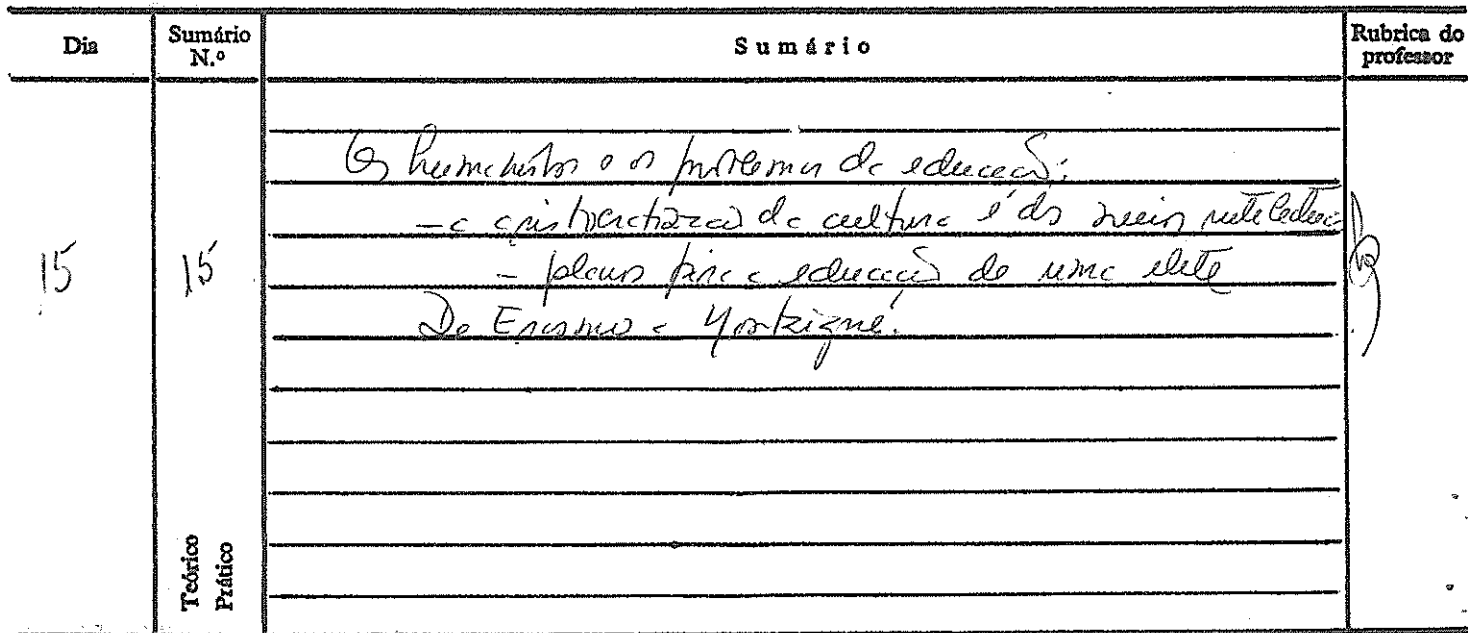 Dia
Sumário N.º
Sumário
Rubrica do professor
Os humanistas e os problemas da educação:
- a aristocratização da cultura e dos meios intelectuais
- planos para a educação de uma elite
De Erasmo a Montaigne.
15
15
Teórico
Prático